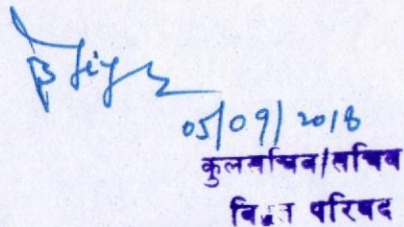 05/09/2018
कुलसचिव/सचिव
परिषद